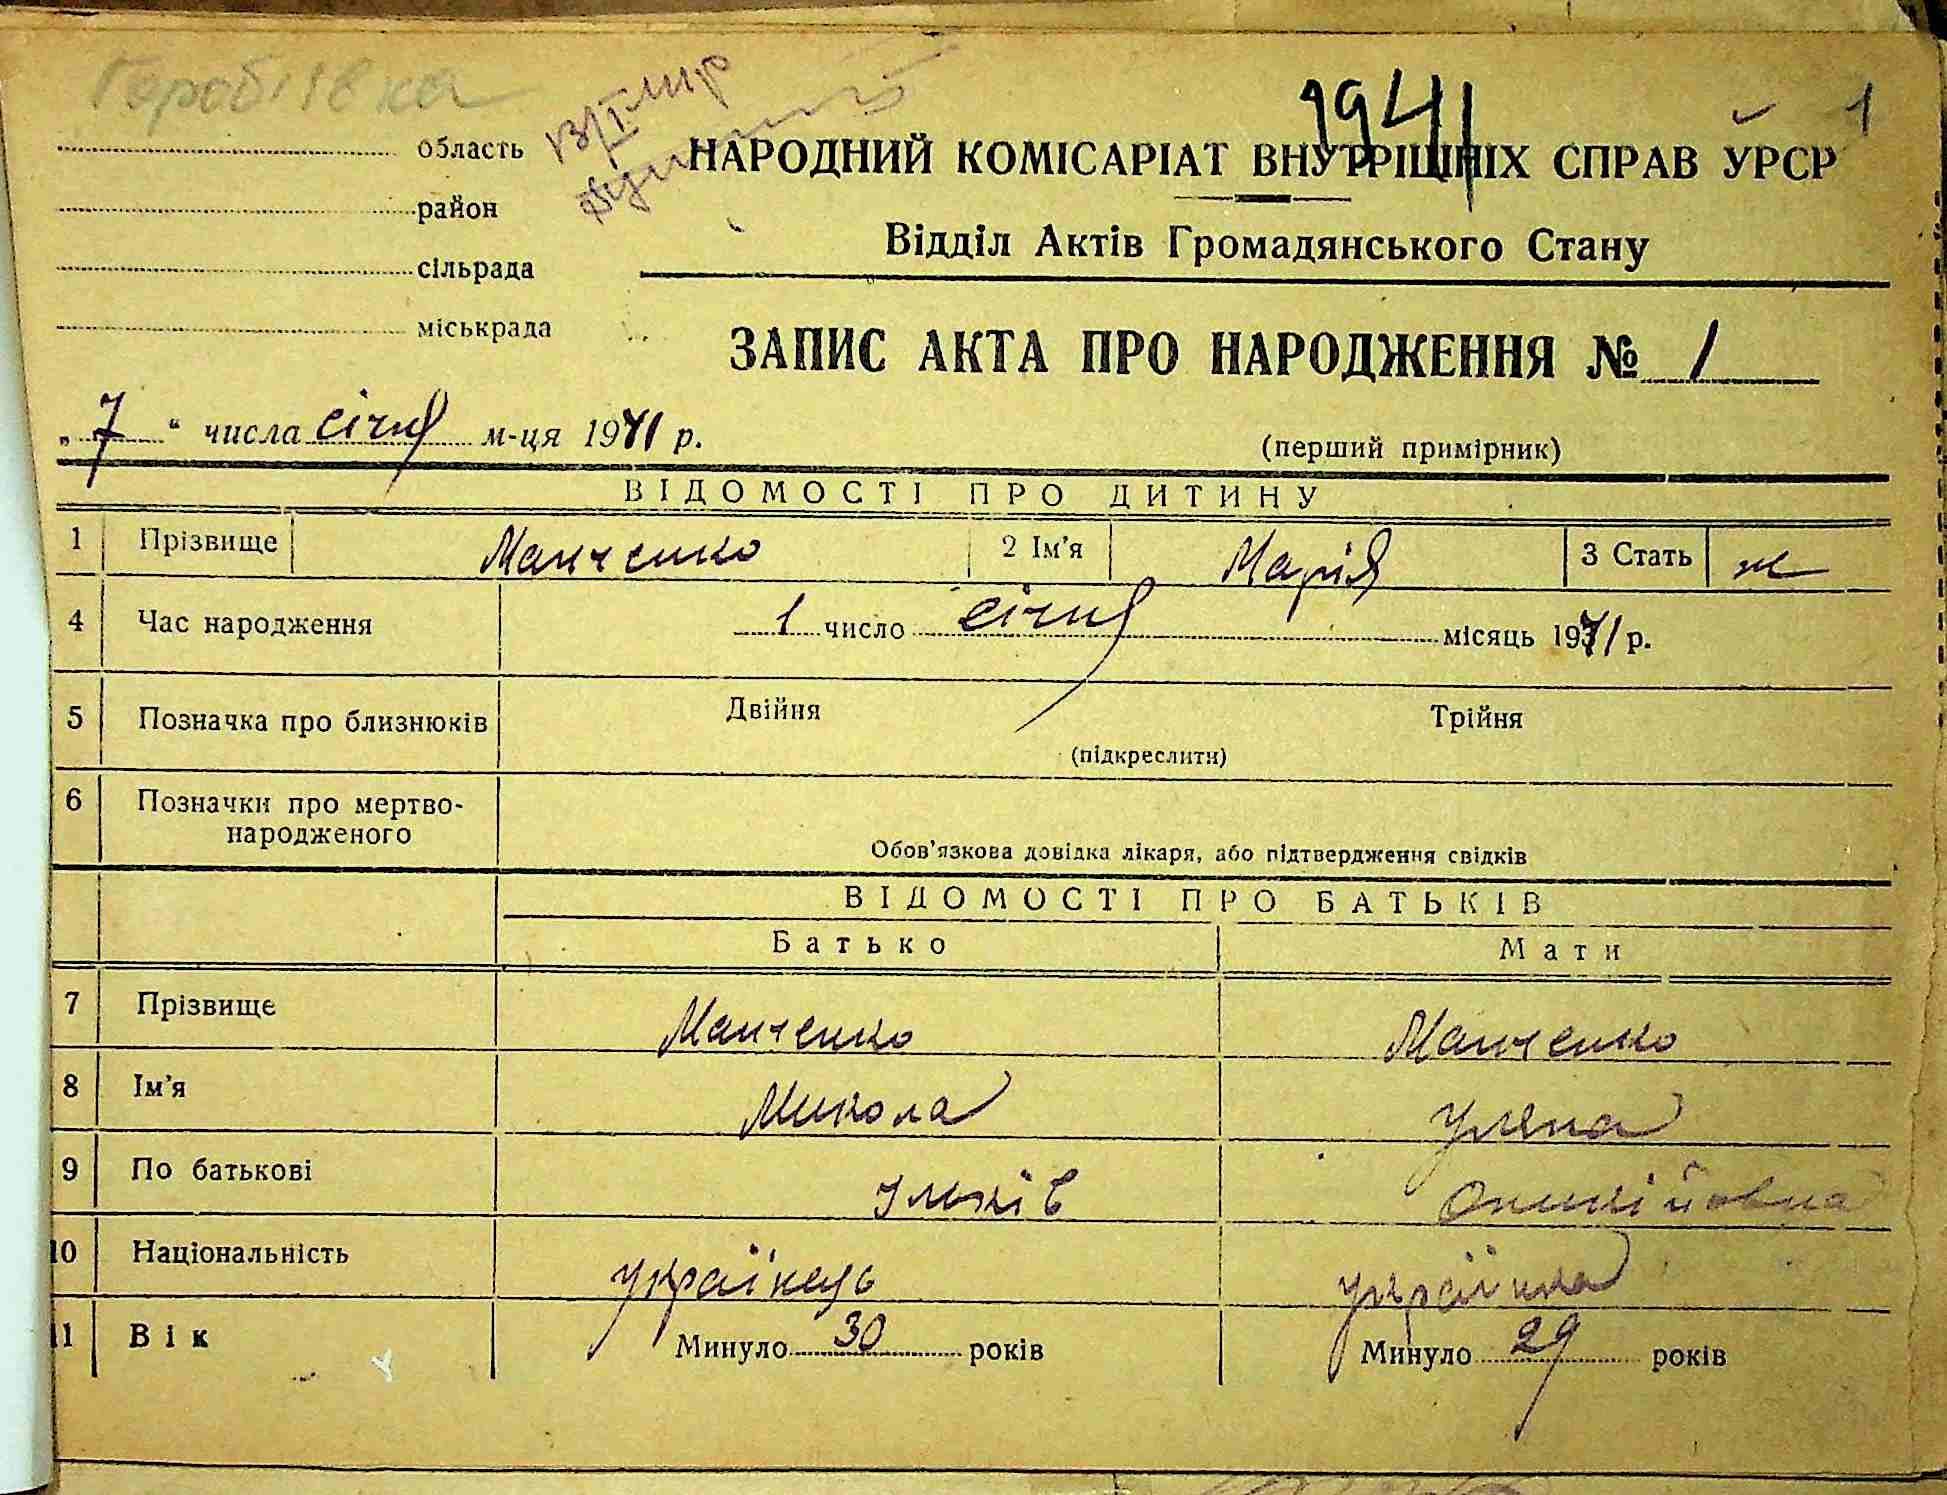 1941 1
область
район
сільрада
міськрада
НАРОДНИЙ КОМІСАРІАТ ВНУТРІШНІХ СПРАВ УРСР
Відділ Актів Громадянського Стану
ЗАПИС АКТА ПРО НАРОДЖЕННЯ № 1
„ 7 “ числа січня м-ця 1941 р.
(перший примірник)
ВІДОМОСТІ ПРО ДИТИНУ
1 Прізвище Манченко 2 Ім'я Марія 3 Стать ж
4 Час народження 1 число січня місяць 1941 р.
5 Позначка про близнюків Двійня Трійня
(підкреслити)
6 Позначки про мертво-
народженого
Обов'язкова довідка лікаря, або підтвердження свідків
ВІДОМОСТІ ПРО БАТЬКІВ
Батько Мати
7 Прізвище Манченко Манченко
8 Ім'я Микола Уляна
9 По батькові
10 Національність українець українка
11 Вік Минуло 30 років Минуло 29 років